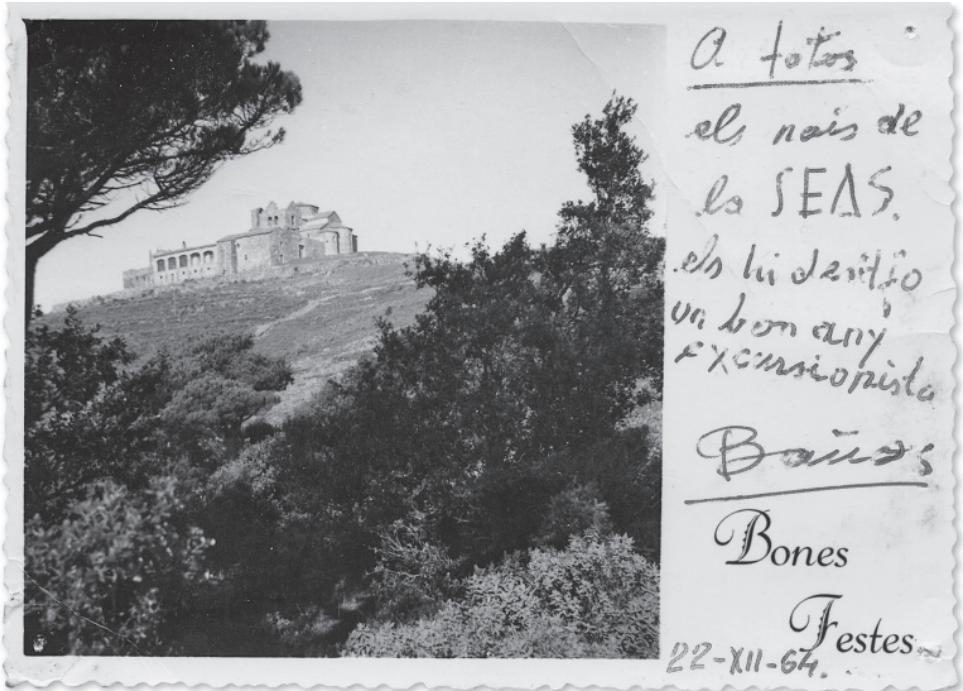 A totos
els nois de
la SEAS.
els hi desitjo
un bon any
excursionista
Bañós
Bones
Festes
22-XII-64.